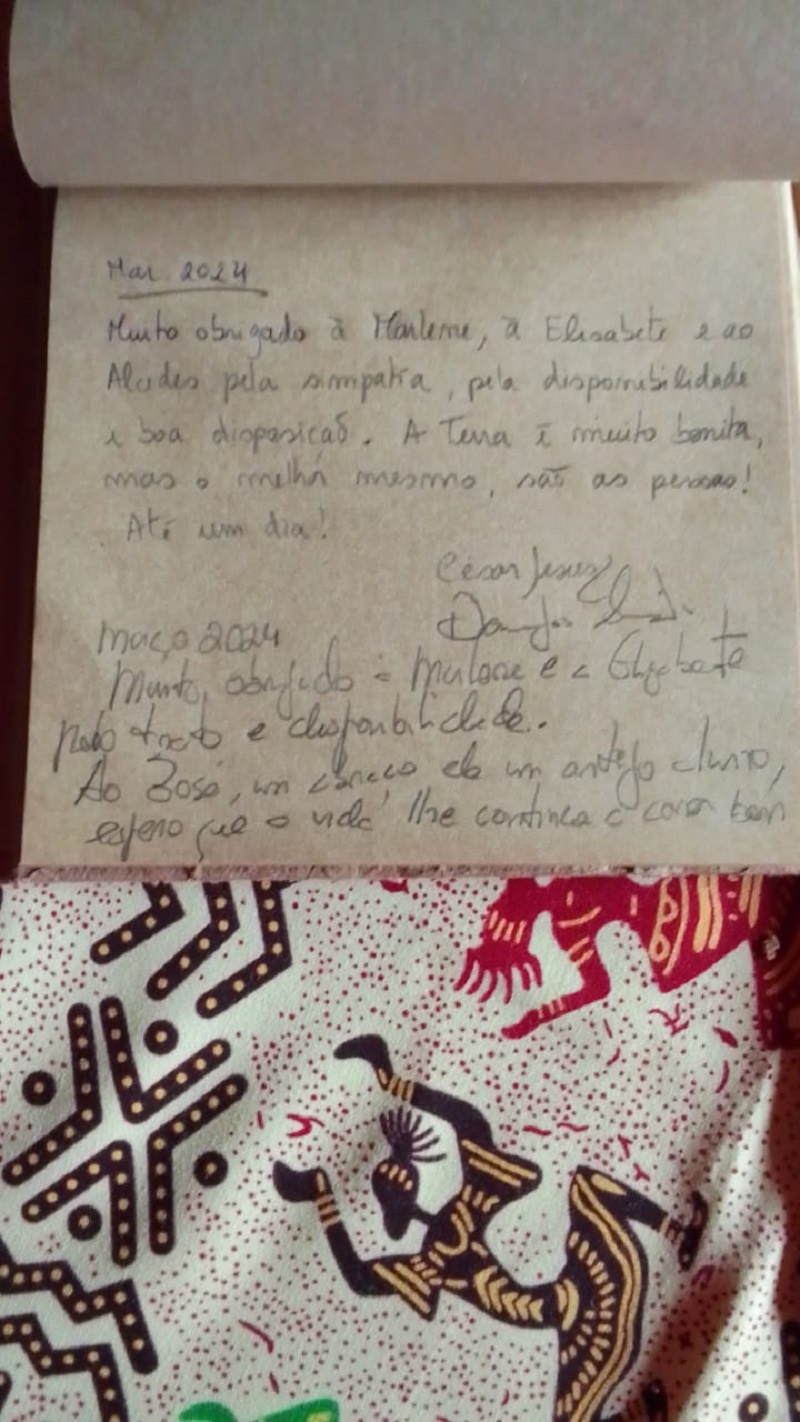 Mar 2024
Muito obrigado à Marlene, à Elisabete e ao
Alcides pela simpatia, pela disponibilidade
e boa disposição. A Terra é muito bonita,
mas o melhor mesmo, são as pessoas!
Até um dia!
César Jesus
março 2024
Muito obrigado à Marlene e a Elisabete
pelo trato e disponibilidade.
Ao José, um abraço de um antigo aluno,
espero que a vida lhe continue a correr bem